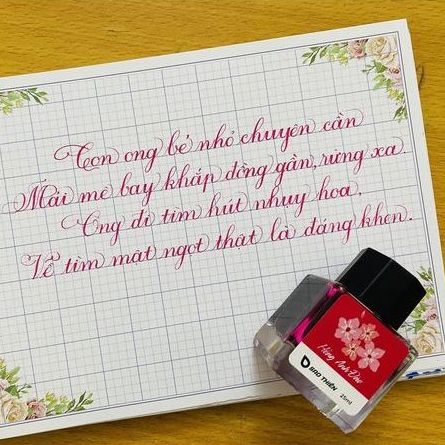 Con ong bé nhỏ chuyên cần
Mải mê bay khắp đồng gần, rừng xa.
Ong đi tìm hút nhụy hoa,
Về tìm mật ngọt thật là đáng khen.
Hồng Anh Đào
BẢO THIÊN
25ml